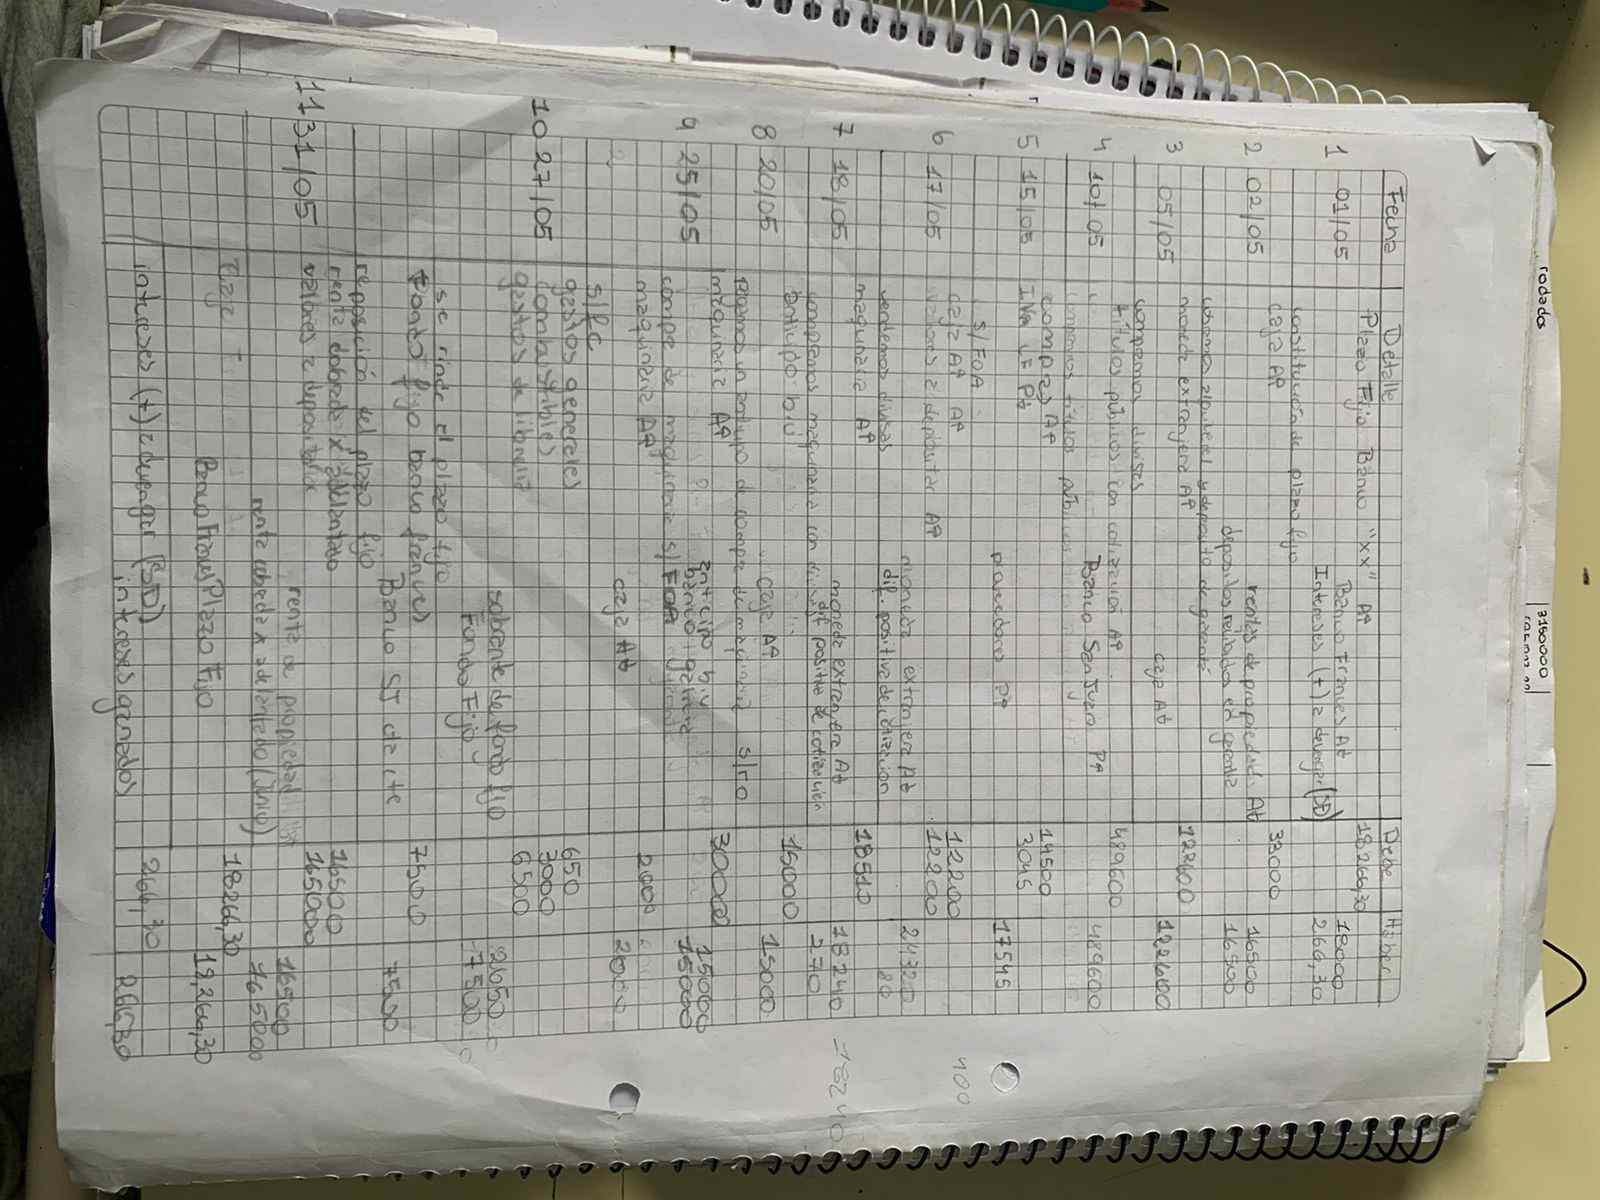 Fecha Detalle Debe Haber
1 01/05 Plazo Fijo Banco "xx" A↑ 18266,30
Banco Frances A↓ 18000
Intereses (+) a devengar (SD) 266,30
constitución de plazo fijo
2 02/05 caja A↑ 33000
rentas de propiedad A↓ 16500
depositos recibidos en garantia 16500
cobramos alquiler y deposito de garantia
3 05/05 moneda extranjera A↑ 122400
caja A↓ 122400
compramos divisas
4 10/05 titulos públicos con cotización A↑ 489600
Banco San Juan P↑ 489600
compramos titulos públicos
5 15/05 compras A↑ 14500
IVA CF P↓ 3045
proveedores P↑ 17545
S/FOA
6 17/05 caja A↑ 12200
valores a depositar A↑ 12200
moneda extranjera A↓ 24320
dif. positiva de cotización 80
vendemos divisas
7 18/05 maquinaria A↑ 18510
moneda extranjera A↓ 18240
dif positiva de cotización 270
compramos maquinaria con divisas
8 20/05 anticipo b.i.u 15000
caja A↓ 15000
pagamos un anticipo de compra de maquinaria s/ro
9 25/05 maquinaria A↑ 30000
anticipo b.i.u 15000
banco galicia 15000
compra de maquinaria s/FOA
maquinaria A↑ 2000
caja A↓ 2000
s/fc
10 27/05 gastos generales 650
combustibles 3000
gastos de libreria 6500
sobrante de fondo fijo 2650
Fondo Fijo 7500
se rinde el plazo fijo
Fondo fijo banco frances 7500
Banco SJ cta cte 7500
reposición del plazo fijo
renta cobrada x adelantado 16500
11 31/05 valores a depositar 165000
renta de propiedad 16500
renta cobrada x adelantado (unico) 165000
Caja F 1826,30
Banco Frances Plazo Fijo 19,266,30
intereses (+) a devengar (SD) 266,30
intereses ganados 266,30
=18240
400
rodados
3150000